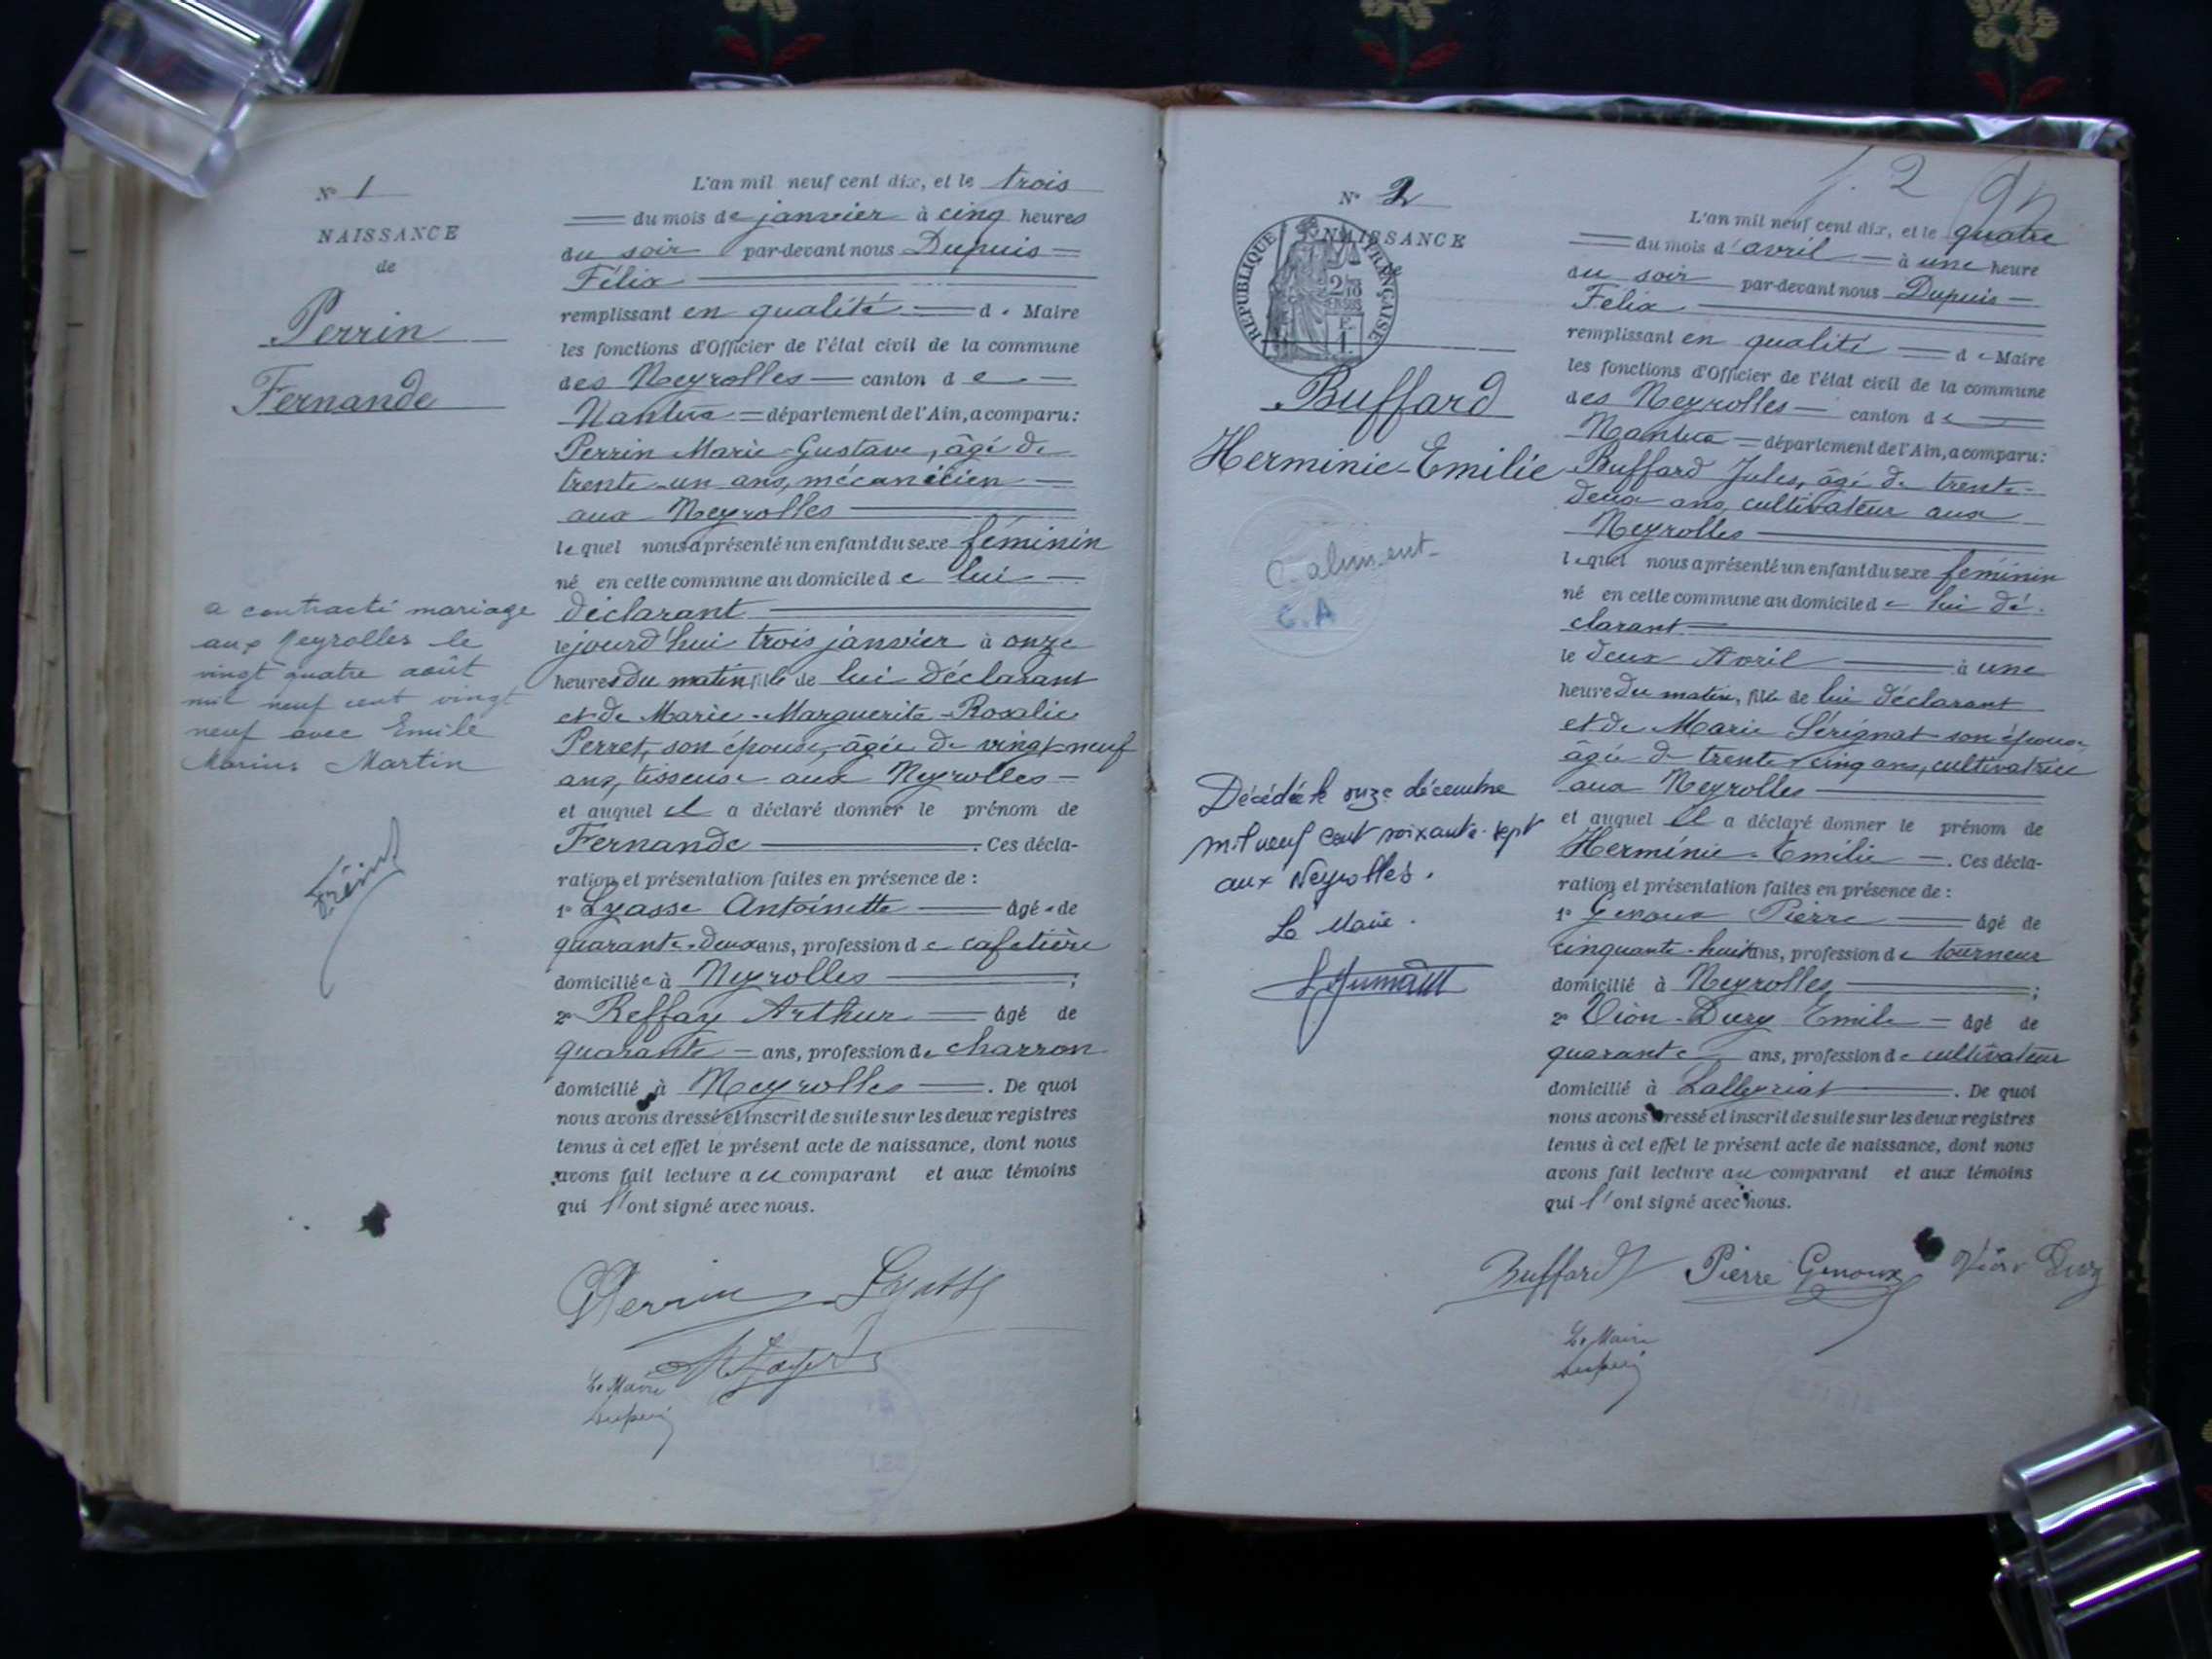 N° 1
NAISSANCE
de
Perrin
Fernande
a contracté mariage
aux Neyrolles le
vingt quatre août
mil neuf cent vingt
neuf avec Emile
Marius Martin
L'an mil neuf cent dix, et le trois
du mois de janvier à cinq heures
du soir par-devant nous Dupuis
Félix
remplissant en qualité de Maire
les fonctions d'Officier de l'état civil de la commune
des Neyrolles canton de
Nantua département de l'Ain, a comparu:
Perrin Marie-Gustave, âgé de
trente-un ans, mécanicien
aux Neyrolles
lequel nous a présenté un enfant du sexe féminin
né en cette commune au domicile de lui
déclarant
cejourd'hui trois janvier à onze
heures du matin, fille de lui déclarant
et de Marie-Marguerite-Rosalie
Perret, son épouse, âgée de vingt-neuf
ans, tisseuse aux Neyrolles
et auquel il a déclaré donner le prénom de
Fernande. Ces décla-
ration et présentation faites en présence de :
1° Lyasse Antoinette âgée de
quarante-deux ans, profession de cafetière
domiciliée à Neyrolles ;
2° Reffay Arthur âgé de
quarante ans, profession de charron
domicilié à Neyrolles. De quoi
nous avons dressé et inscrit de suite sur les deux registres
tenus à cet effet le présent acte de naissance, dont nous
avons fait lecture au comparant et aux témoins
qui l'ont signé avec nous.
Perrin Lyasse
Le Maire
Dupuis
1. 2
N° 2
NAISSANCE
de
RÉPUBLIQUE FRANÇAISE
Buffard
Herminie-Emilie
C.A
Décédée le onze décembre
mil neuf cent soixante-sept
aux Neyrolles.
Le Maire.
L'an mil neuf cent dix, et le quatre
du mois d'avril à une heure
du soir par-devant nous Dupuis
Félix
remplissant en qualité de Maire
les fonctions d'Officier de l'état civil de la commune
des Neyrolles canton de
Nantua département de l'Ain, a comparu:
Buffard Jules, âgé de trente-
deux ans, cultivateur aux
Neyrolles
lequel nous a présenté un enfant du sexe féminin
né en cette commune au domicile de lui dé-
clarant
le deux Avril à une
heure du matin, fille de lui déclarant
et de Marie Sérignat son épouse
âgée de trente cinq ans, cultivatrice
aux Neyrolles
et auquel il a déclaré donner le prénom de
Herminie-Emilie. Ces décla-
ration et présentation faites en présence de :
1° Genoux Pierre âgé de
cinquante-huit ans, profession de tourneur
domicilié à Neyrolles ;
2° Vion-Dury Emile âgé de
quarante ans, profession de cultivateur
domicilié à Lalleyriat. De quoi
nous avons dressé et inscrit de suite sur les deux registres
tenus à cet effet le présent acte de naissance, dont nous
avons fait lecture au comparant et aux témoins
qui l'ont signé avec nous.
Buffard Pierre Genoux Vion Dury
Le Maire
Dupuis